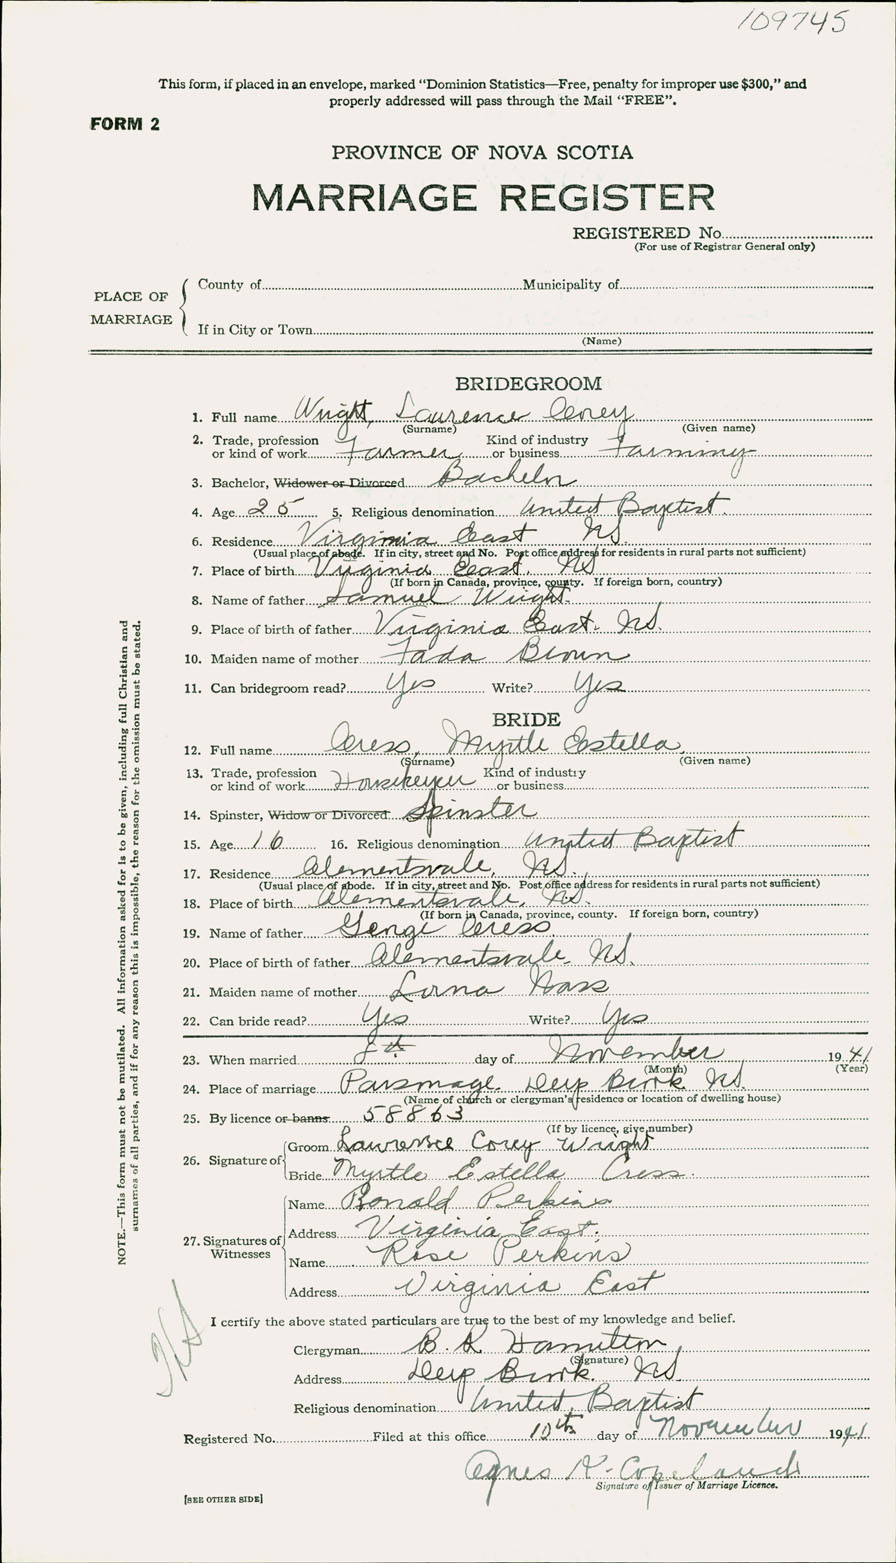 109745
This form, if placed in an envelope, marked “Dominion Statistics—Free, penalty for improper use $300,” and
properly addressed will pass through the Mail “FREE”.
FORM 2
PROVINCE OF NOVA SCOTIA
MARRIAGE REGISTER
REGISTERED No.
(For use of Registrar General only)
PLACE OF MARRIAGE
County of Municipality of
If in City or Town
(Name)
BRIDEGROOM
1. Full name Wright, Laurence Corey
(Surname) (Given name)
2. Trade, profession or kind of work Farmer Kind of industry or business Farming
3. Bachelor, Widower or Divorced Bachelor
4. Age 25 5. Religious denomination United Baptist
6. Residence Virginia East NS
(Usual place of abode. If in city, street and No. Post office address for residents in rural parts not sufficient)
7. Place of birth Virginia East. NS
(If born in Canada, province, county. If foreign born, country)
8. Name of father Samuel Wright.
9. Place of birth of father Virginia East. NS.
10. Maiden name of mother Fada Brown
11. Can bridegroom read? Yes Write? Yes
BRIDE
12. Full name Cress, Myrtle Estella
(Surname) (Given name)
13. Trade, profession or kind of work Housekeeper Kind of industry or business
14. Spinster, Widow or Divorced Spinster
15. Age 16 16. Religious denomination United Baptist
17. Residence Clementsvale, NS.
(Usual place of abode. If in city, street and No. Post office address for residents in rural parts not sufficient)
18. Place of birth Clementsvale, NS.
(If born in Canada, province, county. If foreign born, country)
19. Name of father George Cress
20. Place of birth of father Clementsvale. NS.
21. Maiden name of mother Lorna
22. Can bride read? Yes Write? Yes
23. When married 8th day of November 1941
(Month) (Year)
24. Place of marriage Parsonage. Deep Brook NS.
(Name of church or clergyman's residence or location of dwelling house)
25. By licence or banns 58863
(If by licence, give number)
26. Signature of Groom Lawrence Corey Wright
Bride Myrtle Estella Cress.
27. Signatures of Witnesses
Name Ronald Perkins
Address Virginia East.
Name Rose Perkins
Address Virginia East
I certify the above stated particulars are true to the best of my knowledge and belief.
Clergyman B. R Hamilton
(Signature)
Address Deep Brook. NS.
Religious denomination United Baptist
Registered No. Filed at this office 10th day of November 1941
Agnes K. Copeland
Signature of Issuer of Marriage Licence.
[SEE OTHER SIDE]
NOTE.—This form must not be mutilated. All information asked for is to be given, including full Christian and
surnames of all parties, and if for any reason this is impossible, the reason for the omission must be stated.